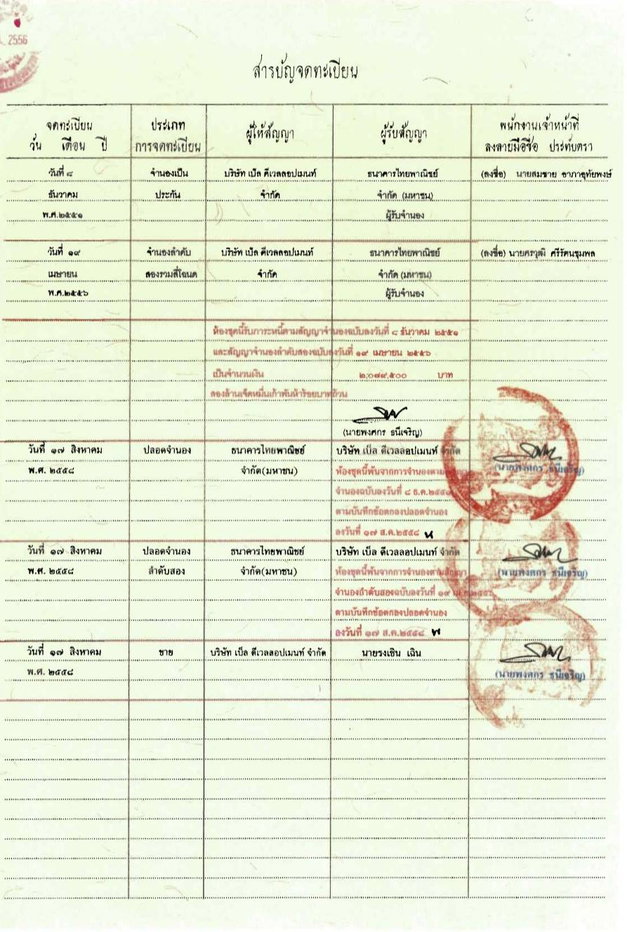 . 2556
สารบัญจดทะเบียน
จดทะเบียน
วัน เดือน ปี
ประเภท
การจดทะเบียน
ผู้ให้สัญญา
ผู้รับสัญญา
พนักงานเจ้าหน้าที่
ลงลายมือชื่อ ประทับตรา
วันที่ ๘ จำนองเป็น บริษัท เบ็ล ดีเวลลอปเมนท์ ธนาคารไทยพาณิชย์ (ลงชื่อ) นายสมชาย อาภาอุทัยพงษ์
ธันวาคม ประกัน จำกัด จำกัด (มหาชน)
พ.ศ.๒๕๕๑ ผู้รับจำนอง
วันที่ ๑๙ จำนองลำดับ บริษัท เบ็ล ดีเวลลอปเมนท์ ธนาคารไทยพาณิชย์ (ลงชื่อ) นายศราวุฒิ ศรีรัตนชุมพล
เมษายน สองรวมสี่โฉนด จำกัด จำกัด (มหาชน)
พ.ศ.๒๕๕๖ ผู้รับจำนอง
ห้องชุดนี้รับภาระหนี้ตามสัญญาจำนองฉบับลงวันที่ ๘ ธันวาคม ๒๕๕๑
และสัญญาจำนองลำดับสองฉบับลงวันที่ ๑๙ เมษายน ๒๕๕๖
เป็นจำนวนเงิน ๒,๐๗๙,๕๐๐ บาท
สองล้านเจ็ดหมื่นเก้าพันห้าร้อยบาทถ้วน
(นายพงศกร ธนีเจริญ)
วันที่ ๑๗ สิงหาคม ปลอดจำนอง ธนาคารไทยพาณิชย์ บริษัท เบ็ล ดีเวลลอปเมนท์ จำกัด
พ.ศ. ๒๕๕๘ จำกัด(มหาชน) ห้องชุดนี้พ้นจากการจำนองตามสัญญา (นายพงศกร ธนีเจริญ)
จำนองฉบับลงวันที่ ๘ ธ.ค.๒๕๕๑
ตามบันทึกข้อตกลงปลอดจำนอง
ลงวันที่ ๑๗ ส.ค.๒๕๕๘
วันที่ ๑๗ สิงหาคม ปลอดจำนอง ธนาคารไทยพาณิชย์ บริษัท เบ็ล ดีเวลลอปเมนท์ จำกัด
พ.ศ. ๒๕๕๘ ลำดับสอง จำกัด(มหาชน) ห้องชุดนี้พ้นจากการจำนองตามสัญญา (นายพงศกร ธนีเจริญ)
จำนองลำดับสองฉบับลงวันที่ ๑๙ เม.ย.๒๕๕๖
ตามบันทึกข้อตกลงปลอดจำนอง
ลงวันที่ ๑๗ ส.ค.๒๕๕๘
วันที่ ๑๗ สิงหาคม ขาย บริษัท เบ็ล ดีเวลลอปเมนท์ จำกัด นายรงเชิน เฉิน
พ.ศ. ๒๕๕๘ (นายพงศกร ธนีเจริญ)